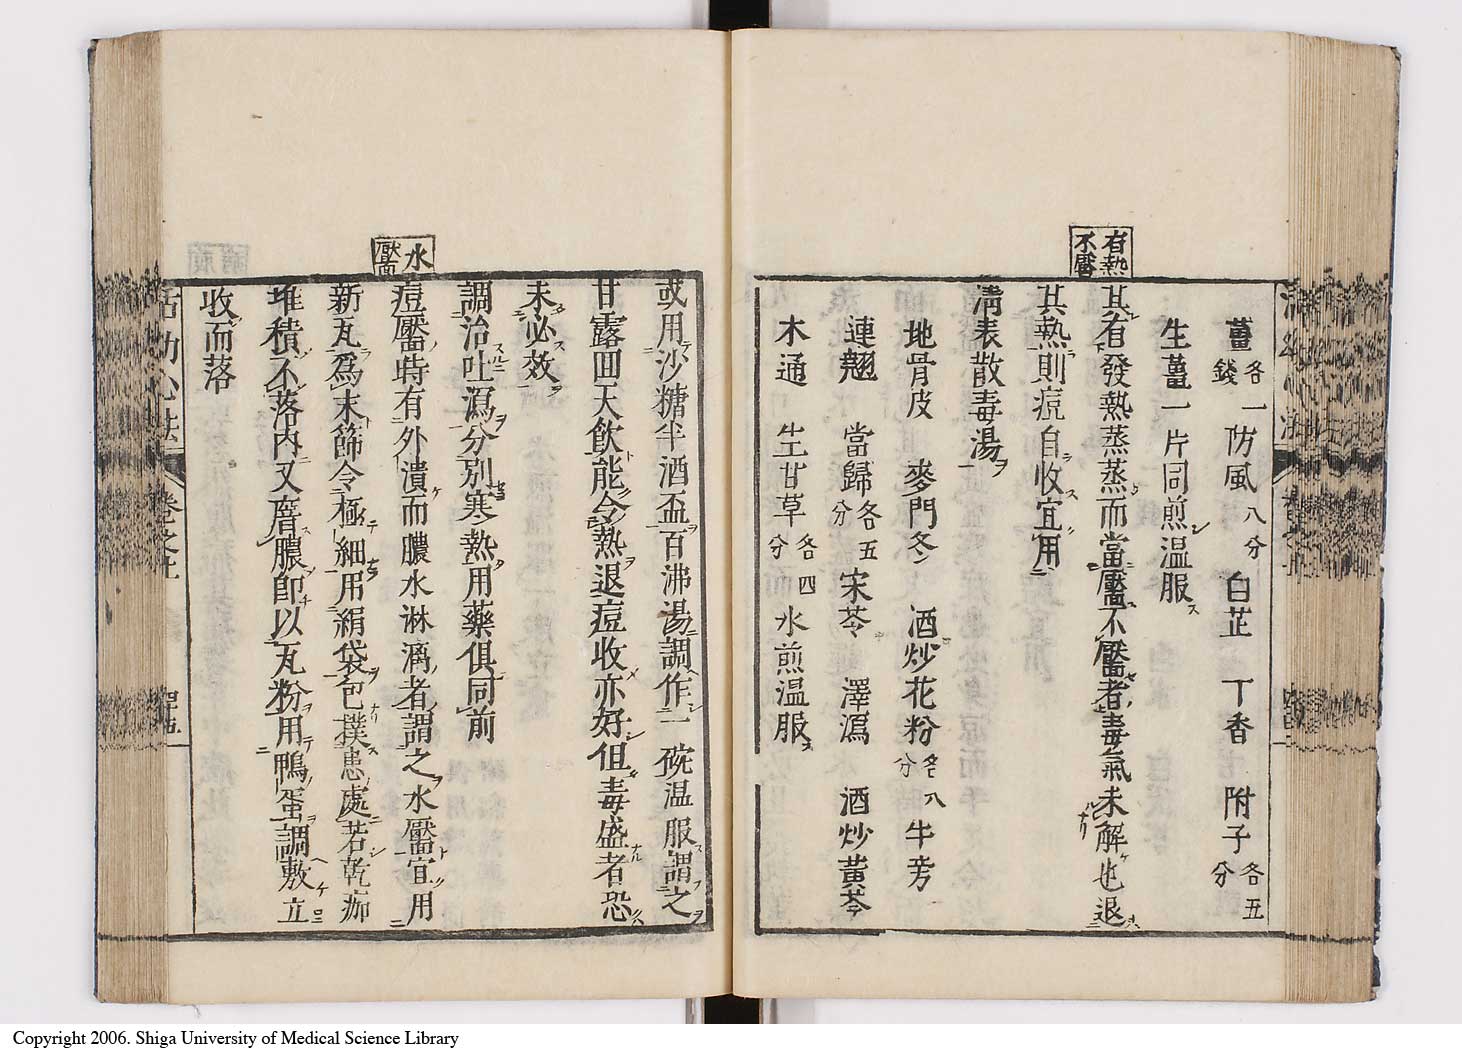 有熱
不靨
薑各一錢 防風八分 白芷 丁香 附子各五分
生薑一片同煎温服
其有發熱蒸蒸而當靨不靨者毒氣未解也退
其熱則痘自收宜用
清表散毒湯
地骨皮 麥門冬 酒炒花粉各八分 牛旁
連翹 當歸各五分 宋苓 澤瀉 酒炒黄芩
木通 生甘草各四分 水煎温服
水靨
或用沙糖半酒盃百沸湯調作一碗温服謂之
甘露回天飲能令熱退痘收亦好但毒盛者恐
未必效
調治吐瀉分別寒熱用藥俱同前
痘靨時有外潰而膿水淋漓者謂之水靨宜用
新瓦爲末篩令極細用絹袋包撲患處若乾痂
堆積不落内又磨膿卽以瓦粉用鴨蛋調敷立
收而落
活幼心法 卷之上
Copyright 2006. Shiga University of Medical Science Library